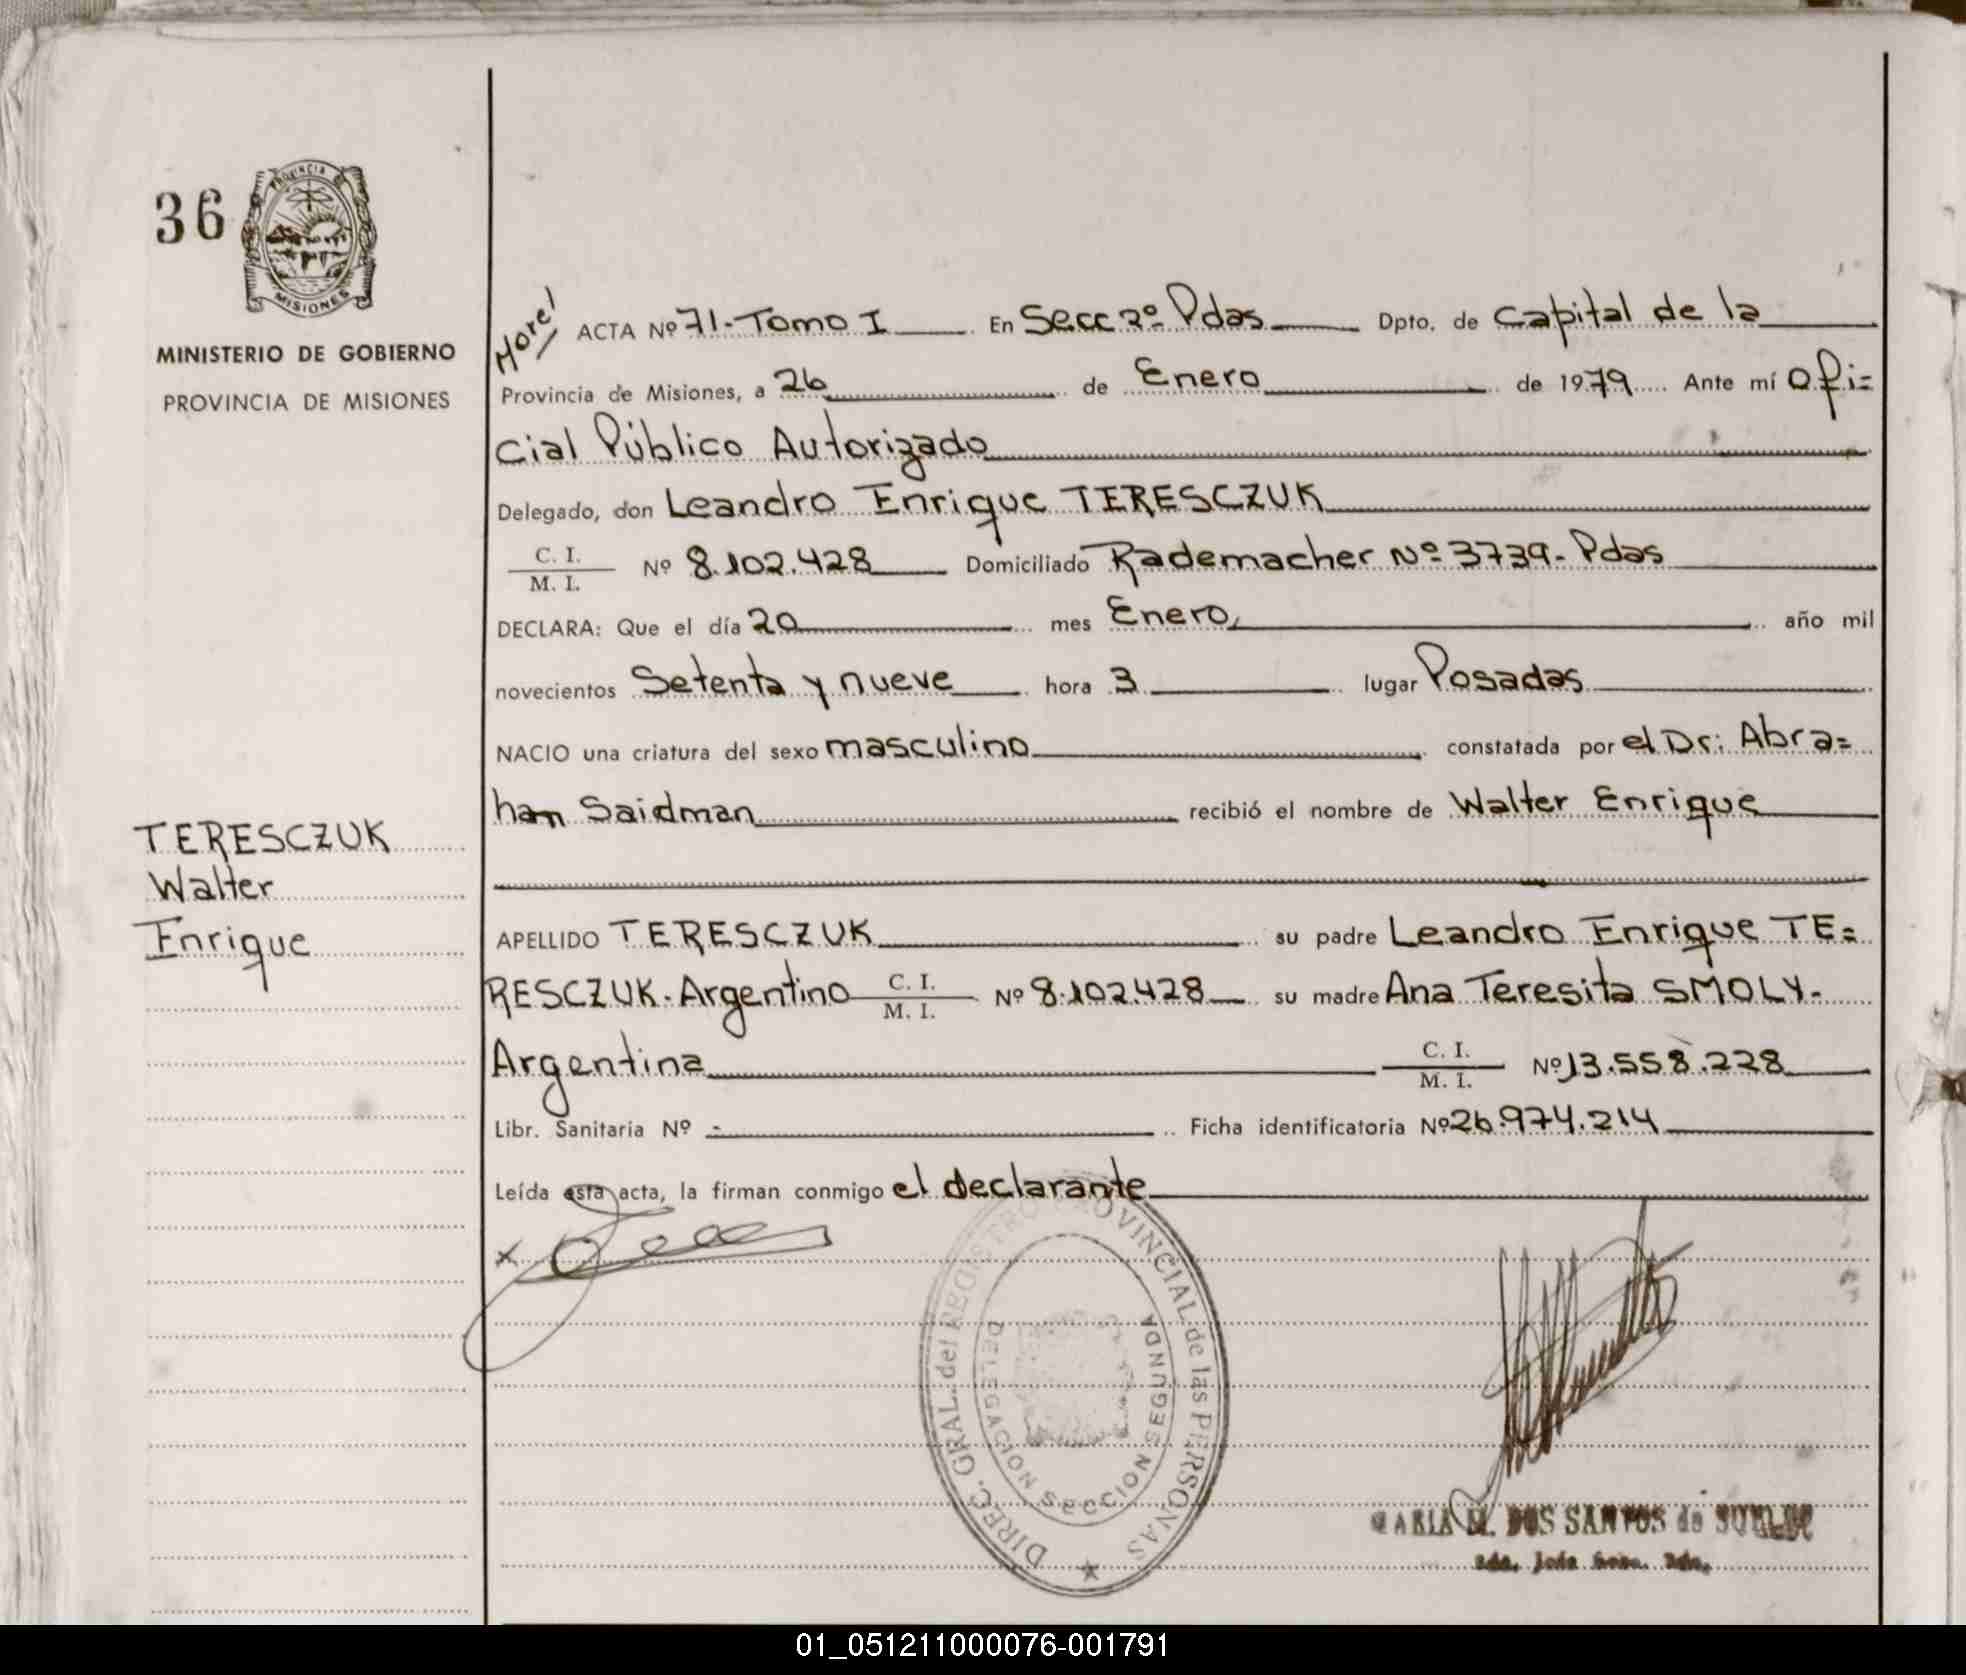 36
PROVINCIA DE
MISIONES
MINISTERIO DE GOBIERNO
PROVINCIA DE MISIONES
TERESCZUK
Walter
Enrique
ACTA Nº 71-Tomo I En Secc 2º Pdas Dpto. de Capital de la
Provincia de Misiones, a 26 de Enero de 1979 Ante mí Ofi=
cial Público Autorizado
Delegado, don Leandro Enrique TERESCZUK
C. I.
M. I.
Nº 8.102.428 Domiciliado Rademacher Nº 3739- Pdas
DECLARA: Que el día 20 mes Enero, año mil
novecientos Setenta y nueve hora 3 lugar Posadas
NACIO una criatura del sexo masculino constatada por el Dr: Abra=
han Saidman recibió el nombre de Walter Enrique
APELLIDO TERESCZUK su padre Leandro Enrique TE=
RESCZUK. Argentino C. I. M. I. Nº 8.102.428 su madre Ana Teresita SMOLY-
Argentina C. I. M. I. Nº 13.558.228
Libr. Sanitaria Nº - Ficha identificatoria Nº 26.974.214
Leída esta acta, la firman conmigo el declarante
x
DIREC. GRAL. del REGISTRO PROVINCIAL de las PERSONAS
DELEGACION SECCION SEGUNDA
MARIA DOS SANTOS de
01_051211000076-001791